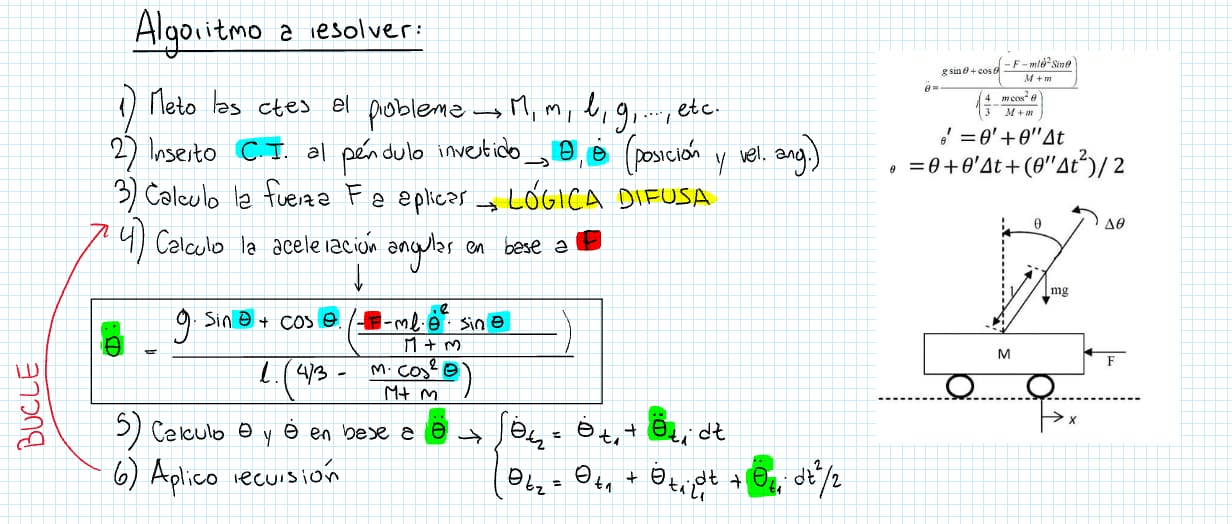 Algoritmo a resolver:
1) Meto las ctes al problema → M, m, l, g, ..., etc.
2) Inserto C.I. al péndulo invertido → θ, θ̇ (posición y vel. ang.)
3) Calculo la fuerza F a aplicar → LÓGICA DIFUSA
4) Calculo la aceleración angular en base a F
↓
θ̈ = (g · sin θ + cos θ · ((-F - ml · θ̇² · sin θ) / (M + m))) / (l · (4/3 - (m · cos² θ) / (M + m)))
5) Calculo θ y θ̇ en base a θ̈ → { θ̇t₂ = θ̇t₁ + θ̈t₁ · dt
6) Aplico recursión
θt₂ = θt₁ + θ̇t₁ · dt + θ̈t₁ · dt²/2
BUCLE
θ̈ = (g sin θ + cos θ ((-F - mlθ̇² Sinθ) / (M + m))) / (l (4/3 - (m cos² θ) / (M + m)))
θ' = θ' + θ''Δt
θ = θ + θ'Δt + (θ''Δt²) / 2
θ
Δθ
l
mg
M
F
x